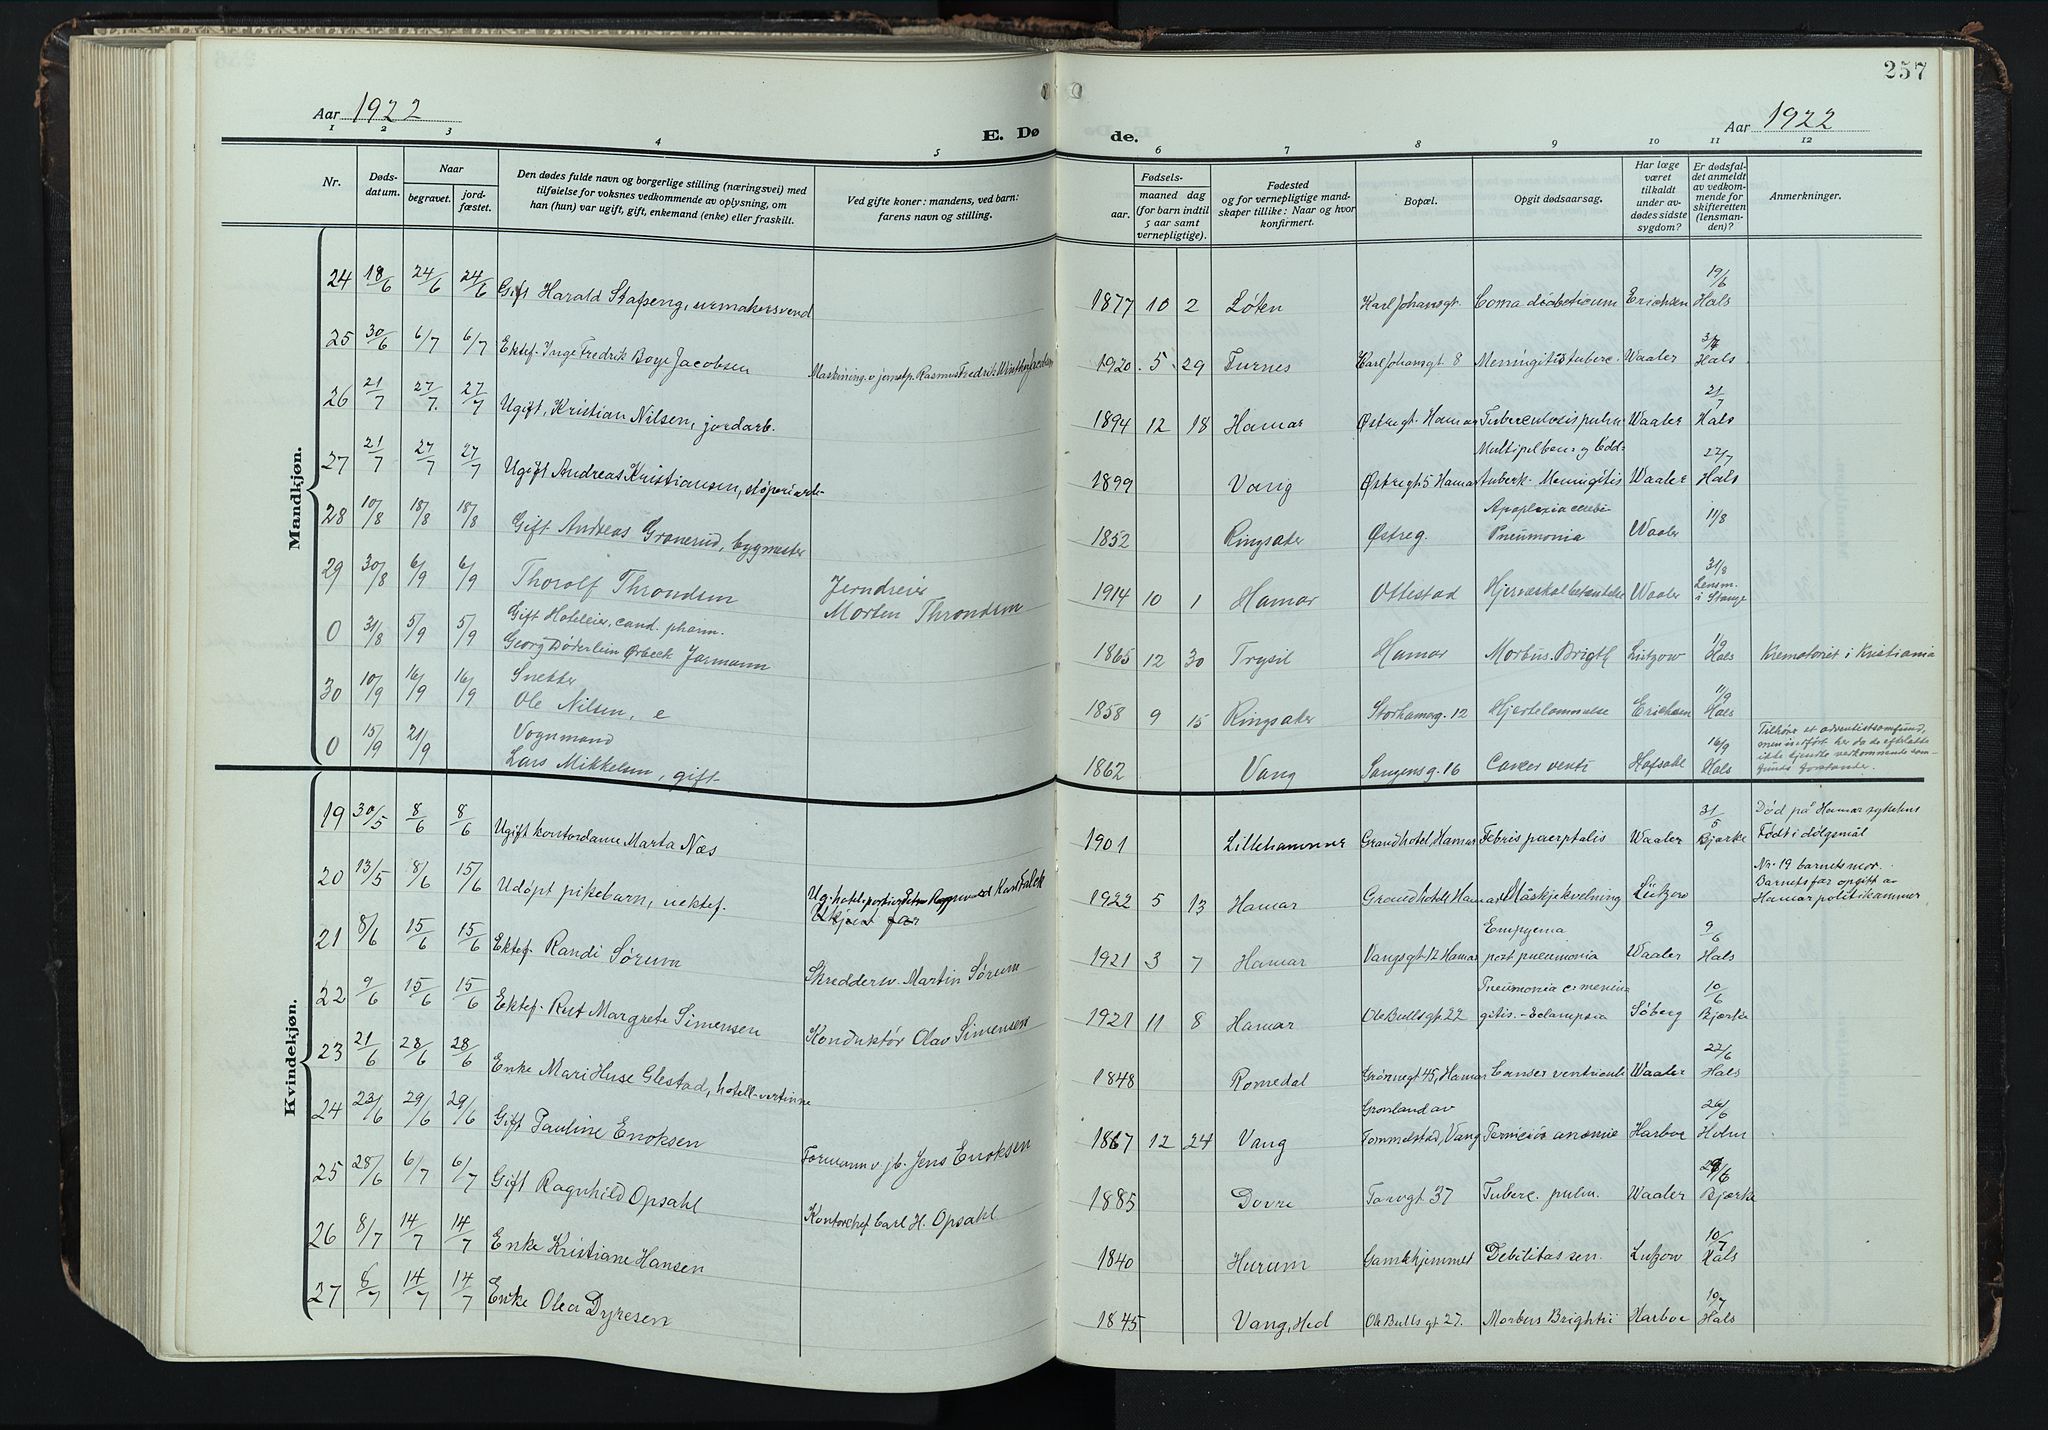 257
Aar 1922
E. Dø de.
Aar 1922
1 2 3 4 5 6 7 8 9 10 11 12
Nr.
Dødsdatum.
Naar
begravet.
jordfæstet.
Den dødes fulde navn og borgerlige stilling (næringsvei) med
tilføielse for voksnes vedkommende av oplysning, om
han (hun) var ugift, gift, enkemand (enke) eller fraskilt.
Ved gifte koner: mandens, ved barn:
farens navn og stilling.
Fødsels-
aar. maaned dag
(for barn indtil
5 aar samt
vernepligtige).
Fødested
og for vernepligtige mand-
skaper tillike: Naar og hvor
konfirmert.
Bopæl.
Opgit dødsaarsag.
Har læge
været
tilkaldt
under av-
dødes sidste
sygdom?
Er dødsfal-
det anmeldt
av vedkom-
mende for
skifteretten
(lensman-
den)?
Anmerkninger.
Mandkjøn.
24 18/6 24/6 24/6 Gift Harald Stafseng, urmakersvend 1877 10 2 Løten Karl Johansgt. Coma diabeticum Erichsen 19/6 Hals
25 30/6 6/7 6/7 Ektef. Inge Fredrik Boye Jacobsen Maskining. v jernstp. Rasmus Fredrik 1920 5 29 Furnes Karl Johansgt 8 Meningitis tuberc. Waaler 3/7 Hals
26 21/7 27/7 27/7 Ugift, Kristian Nilsen, jordarb. 1894 12 18 Hamar Østregt. Hamar Tuberculosis pulm. Waaler 21/7 Hals
27 21/7 27/7 27/7 Ugift Andreas Kristiansen, støperiarb. 1899 Vang Østregt 5 Hamar Multipel ben- og
tuberk. Meningitis Waaler 22/7 Hals
28 10/8 18/8 18/8 Gift Andreas Granerud, bygmester 1852 Ringsaker Østreg. Apoplexia cerebi
Pneumonia Waaler 11/8
29 30/8 6/9 6/9 Thorolf Throndsen Jerndreier
Morten Throndsen 1914 10 1 Hamar Ottestad Hjerneskalbetændelse Waaler 31/8 Lensm.
i Stange
0 31/8 5/9 5/9 Gift Hoteleier, cand. pharm.
Georg Døderlein Ørbeck Jarmann 1865 12 30 Trysil Hamar Morbus. Brigth Lützow 1/9 Hals Krematoriet i Kristiania
30 10/9 16/9 16/9 Snekker
Ole Nilsen, e 1858 9 15 Ringsaker Storhamarg. 12 Hjertelammelse Erichsen 11/9 Hals
0 15/9 21/9 Vognmand
Lars Mikkelsen, gift 1862 Vang Sangensg. 16 Cancer ventr Hafsahl 16/9 Hals Tilhører et adventistsamfund,
men indført her da de efterladte
ikke kjendte vedkommende sam-
funds forstander.
Kvindekjøn.
19 30/5 8/6 8/6 Ugift kontordame Marta Næs 1901 Lillehammer Grandhotel Hamar Febris puerptalis Waaler 31/5 Bjerke Død på Hamar sykehus
Født i dølgsmål
20 13/5 8/6 15/6 Udøpt pikebarn, uektef. Ug. hotelportier Karl Falck
Ukjent far 1922 5 13 Hamar Grand hotel Hamar kvelning Lützow Nr. 19 barnets mor.
Barnets far opgitt av
Hamar politikammer
21 8/6 15/6 15/6 Ektef. Randi Sørum Skreddersv. Martin Sørum 1921 3 7 Hamar Vangsgt 12 Hamar Empyema
post pneumonia Waaler 9/6 Hals
22 9/6 15/6 15/6 Ektef. Rut Margrete Simensen Konduktør Olav Simensen 1921 11 8 Hamar Ole Bullsgt 22 Pneumonia c: menin-
gitis. - Eclampsia Søberg 10/6 Bjerke
23 21/6 28/6 28/6 Enke Mari Huse Glestad, hotell-vertinne 1848 Romedal Grønnegt 45, Hamar Canser ventricule Waaler 22/6 Hals
24 23/6 29/6 29/6 Gift Pauline Enoksen Formann v jb. Jens Enoksen 1867 12 24 Vang Grønland av
Tommelstad, Vang Perniciøs anæmie Harboe 26/6 Holm
25 28/6 6/7 6/7 Gift Ragnhild Opsahl Kontorchef Carl H. Opsahl 1885 Dovre Torvgt 37 Tuberc. pulm. Waaler 29/6 Bjerke
26 8/7 14/7 14/7 Enke Kristiane Hansen 1840 Hurum Gamlehjemmet Debilitas sen. Lutzow 10/7 Hals
27 8/7 14/7 14/7 Enke Olea Dyresen 1845 Vang, Hed Ole Bullsgt 27. Morbus Brightii Harboe 10/7 Hals